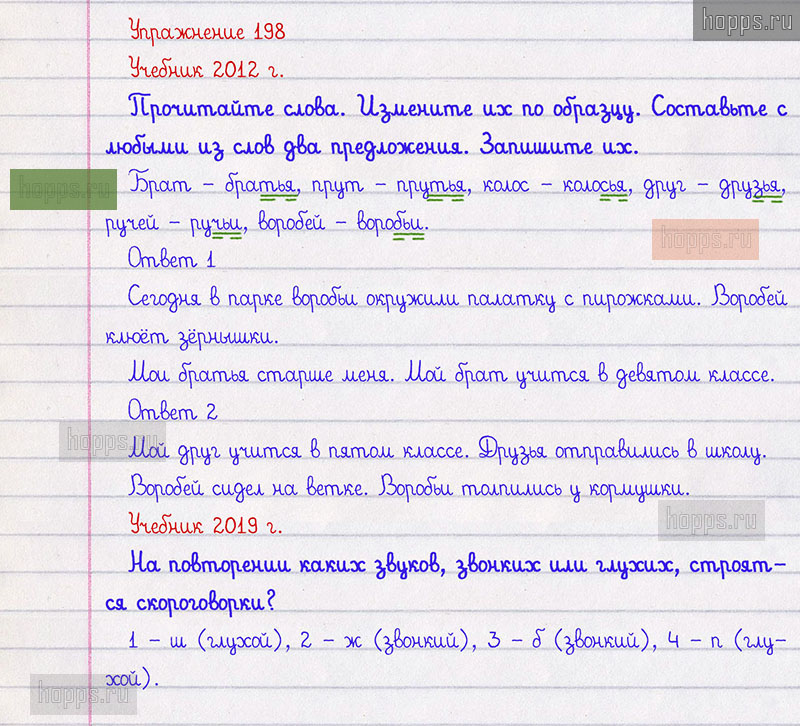 hopps.ru
Упражнение 198
Учебник 2012 г.
Прочитайте слова. Измените их по образцу. Составьте с
любыми из слов два предложения. Запишите их.
hopps.ru
Брат – братья, прут – прутья, колос – колосья, друг – друзья,
ручей – ручьи, воробей – воробьи.
hopps.ru
Ответ 1
Сегодня в парке воробьи окружили палатку с пирожками. Воробей
клюёт зёрнышки.
Мои братья старше меня. Мой брат учится в девятом классе.
Ответ 2
hopps.ru
Мой друг учится в пятом классе. Друзья отправились в школу.
Воробей сидел на ветке. Воробьи толпились у кормушки.
hopps.ru
Учебник 2019 г.
На повторении каких звуков, звонких или глухих, строят-
ся скороговорки?
1 – ш (глухой), 2 – ж (звонкий), 3 – б (звонкий), 4 – п (глу-
хой).
hopps.ru